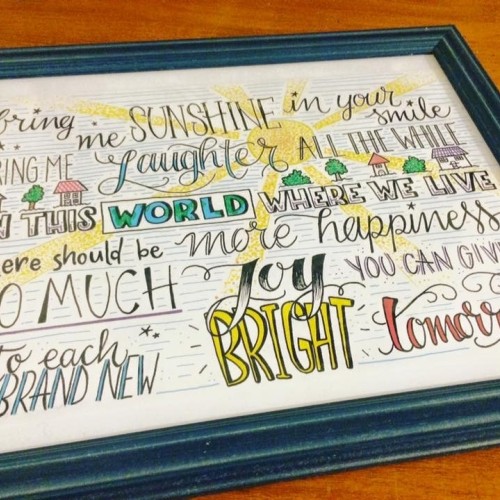 bring me SUNSHINE in your smile
RING ME Laughter ALL THE WHILE
N THIS WORLD WHERE WE LIVE
ere should be more happiness
O MUCH Joy YOU CAN GIV
to each BRAND NEW BRIGHT tomorr